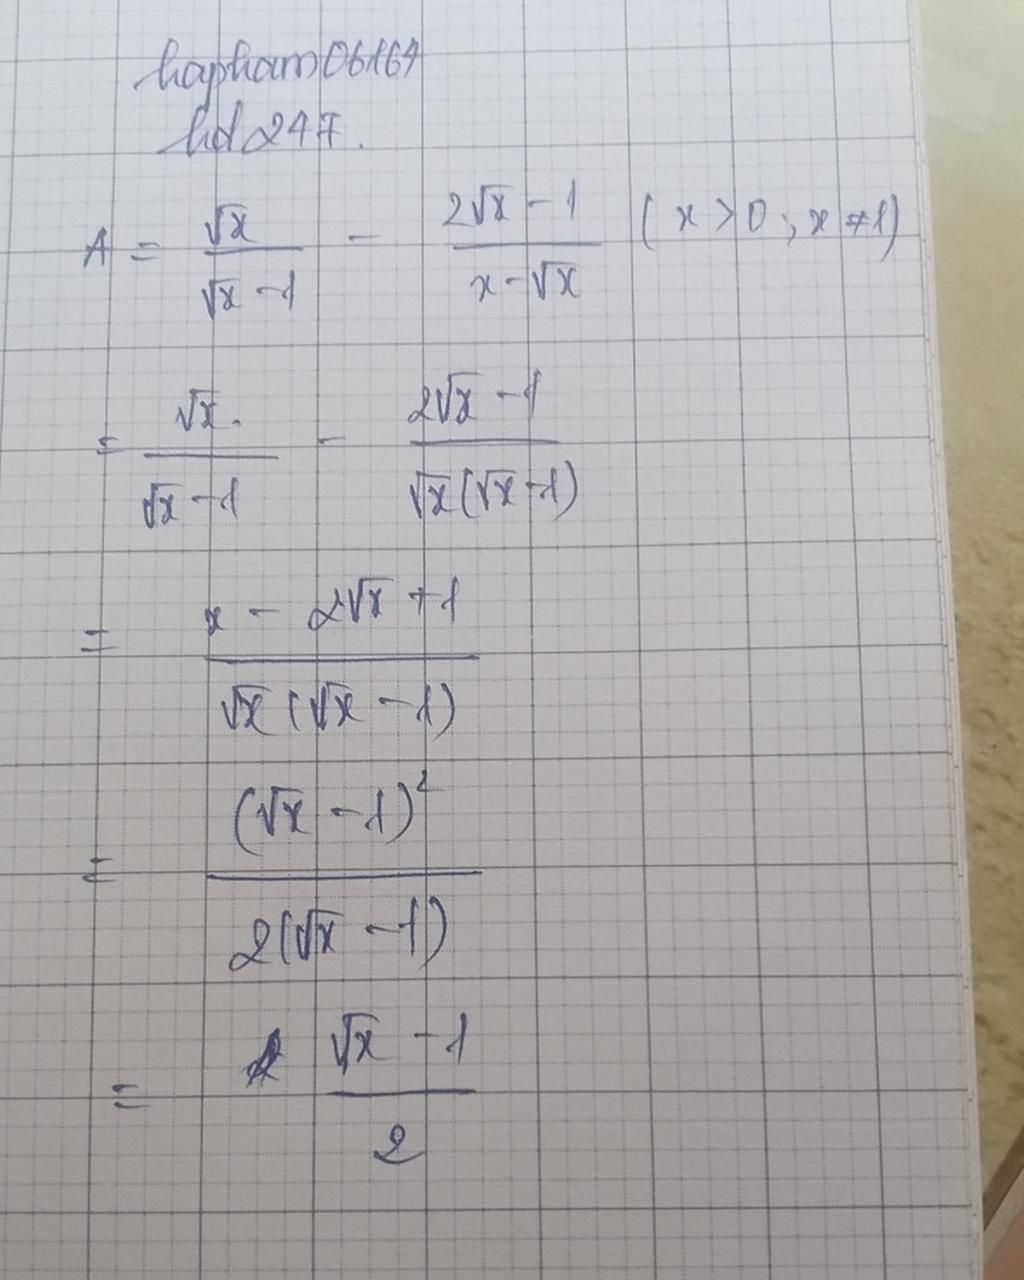 hapham06164
hd247.
A = √x / (√x - 1) - (2√x - 1) / (x - √x) (x > 0; x ≠ 1)
= √x. / (√x - 1) - (2√x - 1) / (√x(√x - 1))
= (x - 2√x + 1) / (√x(√x - 1))
= (√x - 1)² / (2(√x - 1))
= (√x - 1) / 2